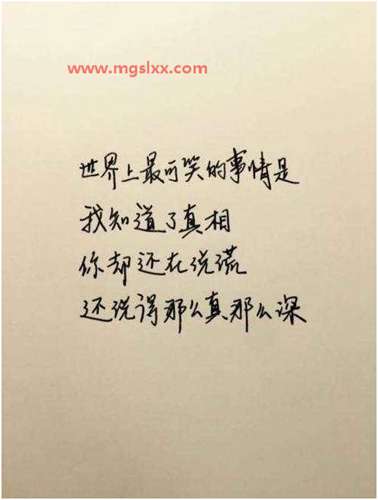 www.mgslxx.com
世界上最可笑的事情是
我知道了真相
你却还在说谎
还说得那么真那么深